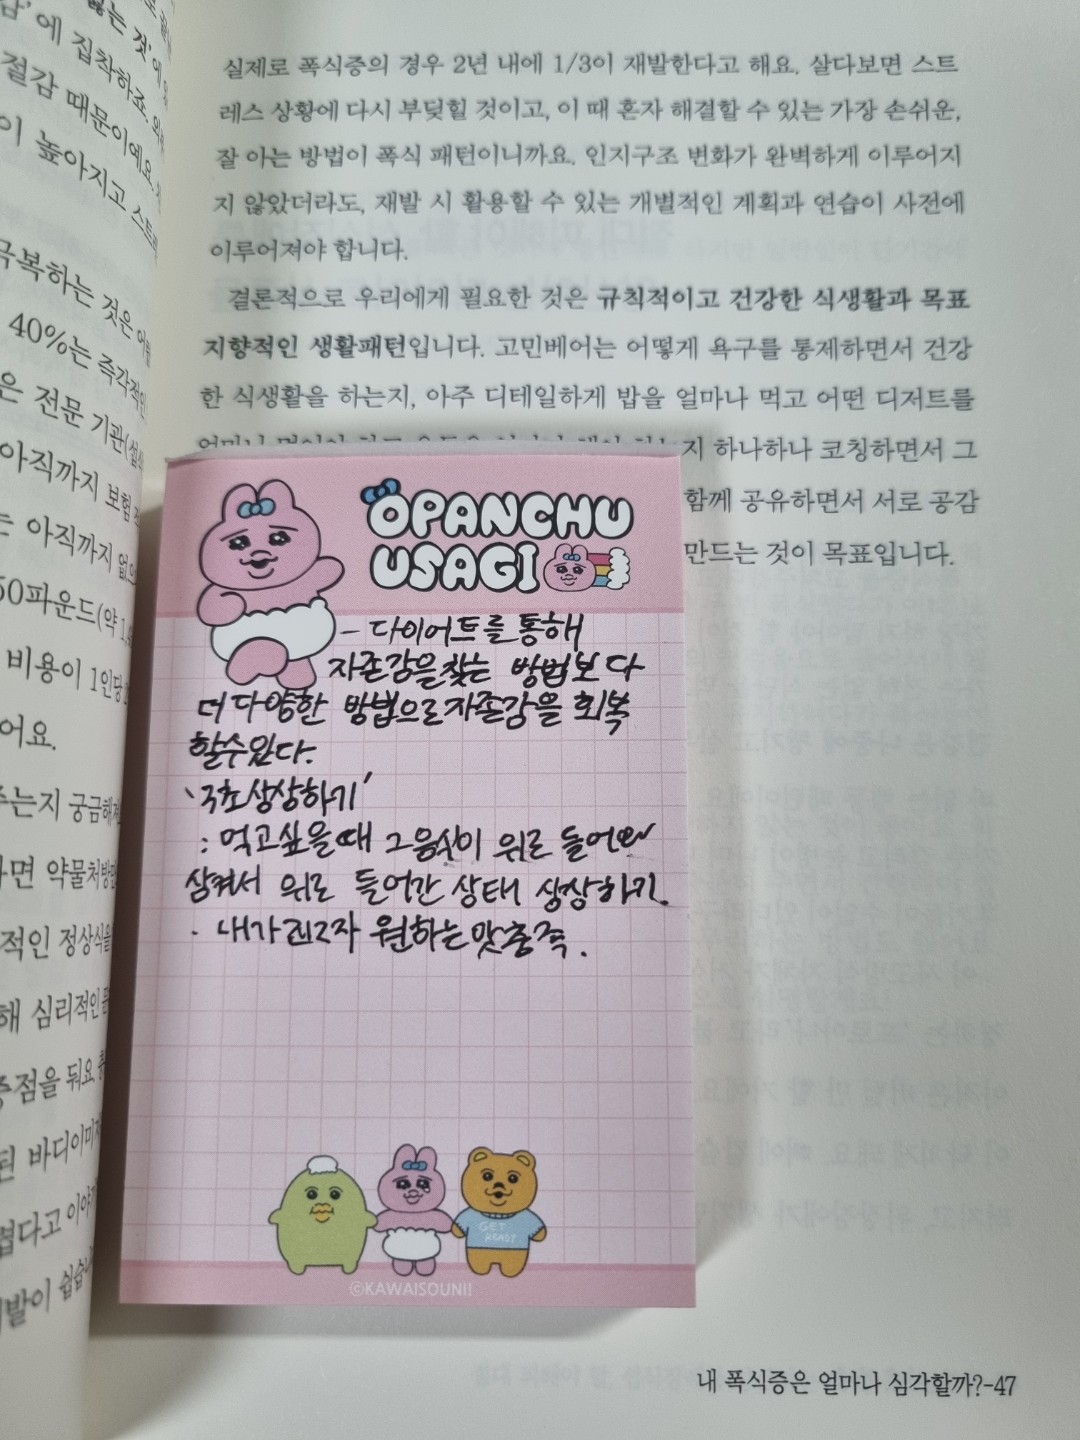 실제로 폭식증의 경우 2년 내에 1/3이 재발한다고 해요. 살다보면 스트
레스 상황에 다시 부딪힐 것이고, 이 때 혼자 해결할 수 있는 가장 손쉬운,
잘 아는 방법이 폭식 패턴이니까요. 인지구조 변화가 완벽하게 이루어지
지 않았더라도, 재발 시 활용할 수 있는 개별적인 계획과 연습이 사전에
이루어져야 합니다.
결론적으로 우리에게 필요한 것은 규칙적이고 건강한 식생활과 목표
지향적인 생활패턴입니다. 고민베어는 어떻게 욕구를 통제하면서 건강
한 식생활을 하는지, 아주 디테일하게 밥을 얼마나 먹고 어떤 디저트를
지 하나하나 코칭하면서 그
함께 공유하면서 서로 공감
만드는 것이 목표입니다.
OPANCHU
USAGI
- 다이어트를 통해
자존감을 찾는 방법보다
더 다양한 방법으로 자존감을 회복
할수있다.
'3초상상하기'
: 먹고싶을때 그음식이 위로 들어
삼켜서 위로 들어간 상태 상상하기.
· 내가 원하는 맞춤
GET
READY
©KAWAISOUNI!
내 폭식증은 얼마나 심각할까?-47
에 집착하죠.
절감 때문이에요.
이 높아지고 스트레
극복하는 것은
40%는 즉각적인
은 전문 기관
아직까지 보험
는 아직까지 없
50파운드(약
비용이 1인당
어요.
주는지 궁금해
하면 약물처방
적인 정상식을
해 심리적인
중점을 둬요.
된 바디이미지
렵다고 이야기
발이 쉽습니